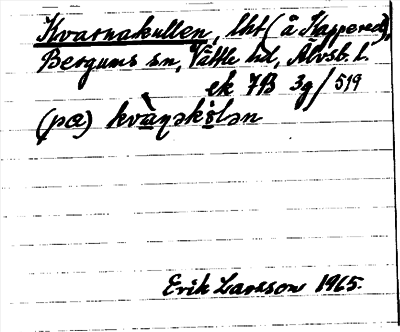 Kvarnakullen, lht (å Kappered),
Bergums sn, Vättle hd, Älvsb. l.
ek 7B 3g/519
(pa)
Erik Larsson 1965.